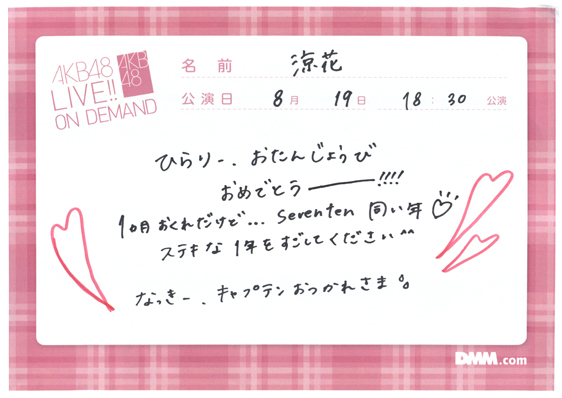 AKB48
LIVE!!
ON DEMAND
AKB
48
名前 涼花
公演日 8月 19日 18:30 公演
ひらりー、おたんじょうび
おめでとうー!!!!
1ヵ月おくれだけど... seventen 同い年♡
ステキな1年をすごしてください^^
なっきー、キャプテンおつかれさま
DMM.com